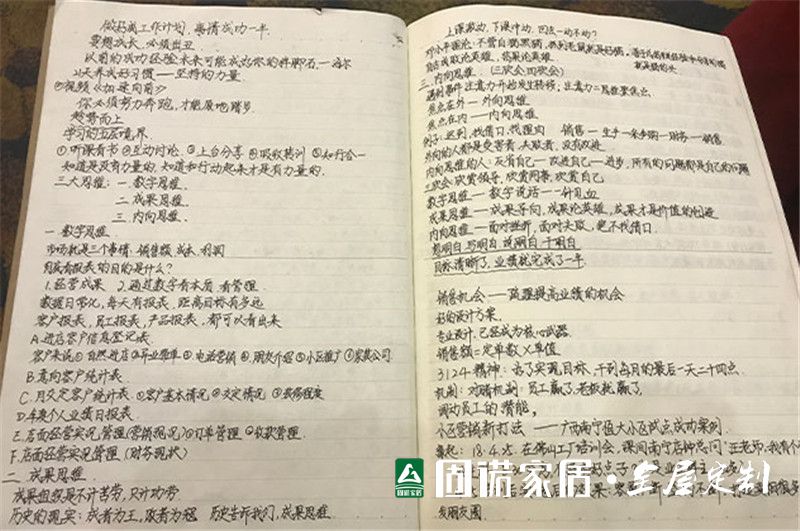 做好周工作计划，离清成功一半.
要想成长，必须出丑.
以前的成功经验未来可能成为你的绊脚石—海尔
21天养成好习惯——坚持的力量.
视频《加速向前》
你必须努力奔跑，才能原地踏步.
趁势而上
学习的五层境界.
①听课看书 ②互动讨论. ③上台分享 ④吸收转训 ⑤知行合一
知道是没有力量的，知道和行动起来才是有力量的.
三大思维：一.数字思维.
二.成果思维.
三.内向思维.
一.数字思维.
市场就是三个事情，销售额，成本，利润
月底看报表的目的是什么？
1.经营成果 2.通过数字看本质，看管理.
数据日常化，每天有报表，距离目标有多远
客户报表，员工报表，产品报表，都可以看出来
A.进店客户信息登记表.
客户来源①自然进店 ②异业带单 ③电话营销 ④朋友介绍 ⑤小区推广 ⑥家装公司.
B.意向客户统计表.
C.月交定客户统计表 ①客户基本情况 ②交定情况 ③装修程度
D.年度个人业绩日报表.
E.店面经营实况管理(营销现况) ①订单管理 ②收款管理.
F.店面经营实况管理(财务现状)
二 成果思维
成果思维是不计苦劳，只计功劳
历史的现实：成者为王，败者为寇 历史告诉我们，成果思维
上课激动，下课冲动，回去一动不动？
邓小平理论：不管白猫黑猫，抓到老鼠就是好猫.
自古成败论英雄，结果论英雄
三.内向思维.（三欣会，四欣会）
遇到事件注意力开始发生转移，注意力=思维聚焦点.
焦点在外—外向思维
焦点在内——内向思维.
例子：迟到，找借口，找理由 销售—生产—采购—财务—销售
外向的人都是受害者，失败者，没有改进
内向思维的人：反省自己—改进自己—进步，所有的问题都是自己的问题
三欣会：欣赏领导，欣赏同事，欣赏自己
数字思维—数字说话——针见血
成果思维—成果导向，成果论英雄，成果才是价值的创造
内向思维—面对挫折，面对失败，绝不找借口.
想明白 写明白 说明白 干明白
目标清晰了，业绩就完成了一半.
销售机会——梳理提高业绩的机会
好的设计方案.
专业设计，已经成为核心武器.
销售额=定单数×单值
3124精神：为了实现目标，干到每月的最后一天二十四点.
机制：对赌机制：员工赢了，老板就赢了.
调动员工的潜能，
小区营销新打法 ——广西南宁恒大小区试点成功案例.
缘起：18.4.25.在佛山工厂培训会，课间南宁店钟总问"王老师，我有个
固诺家居
固诺家居·全屋定制
发朋友圈